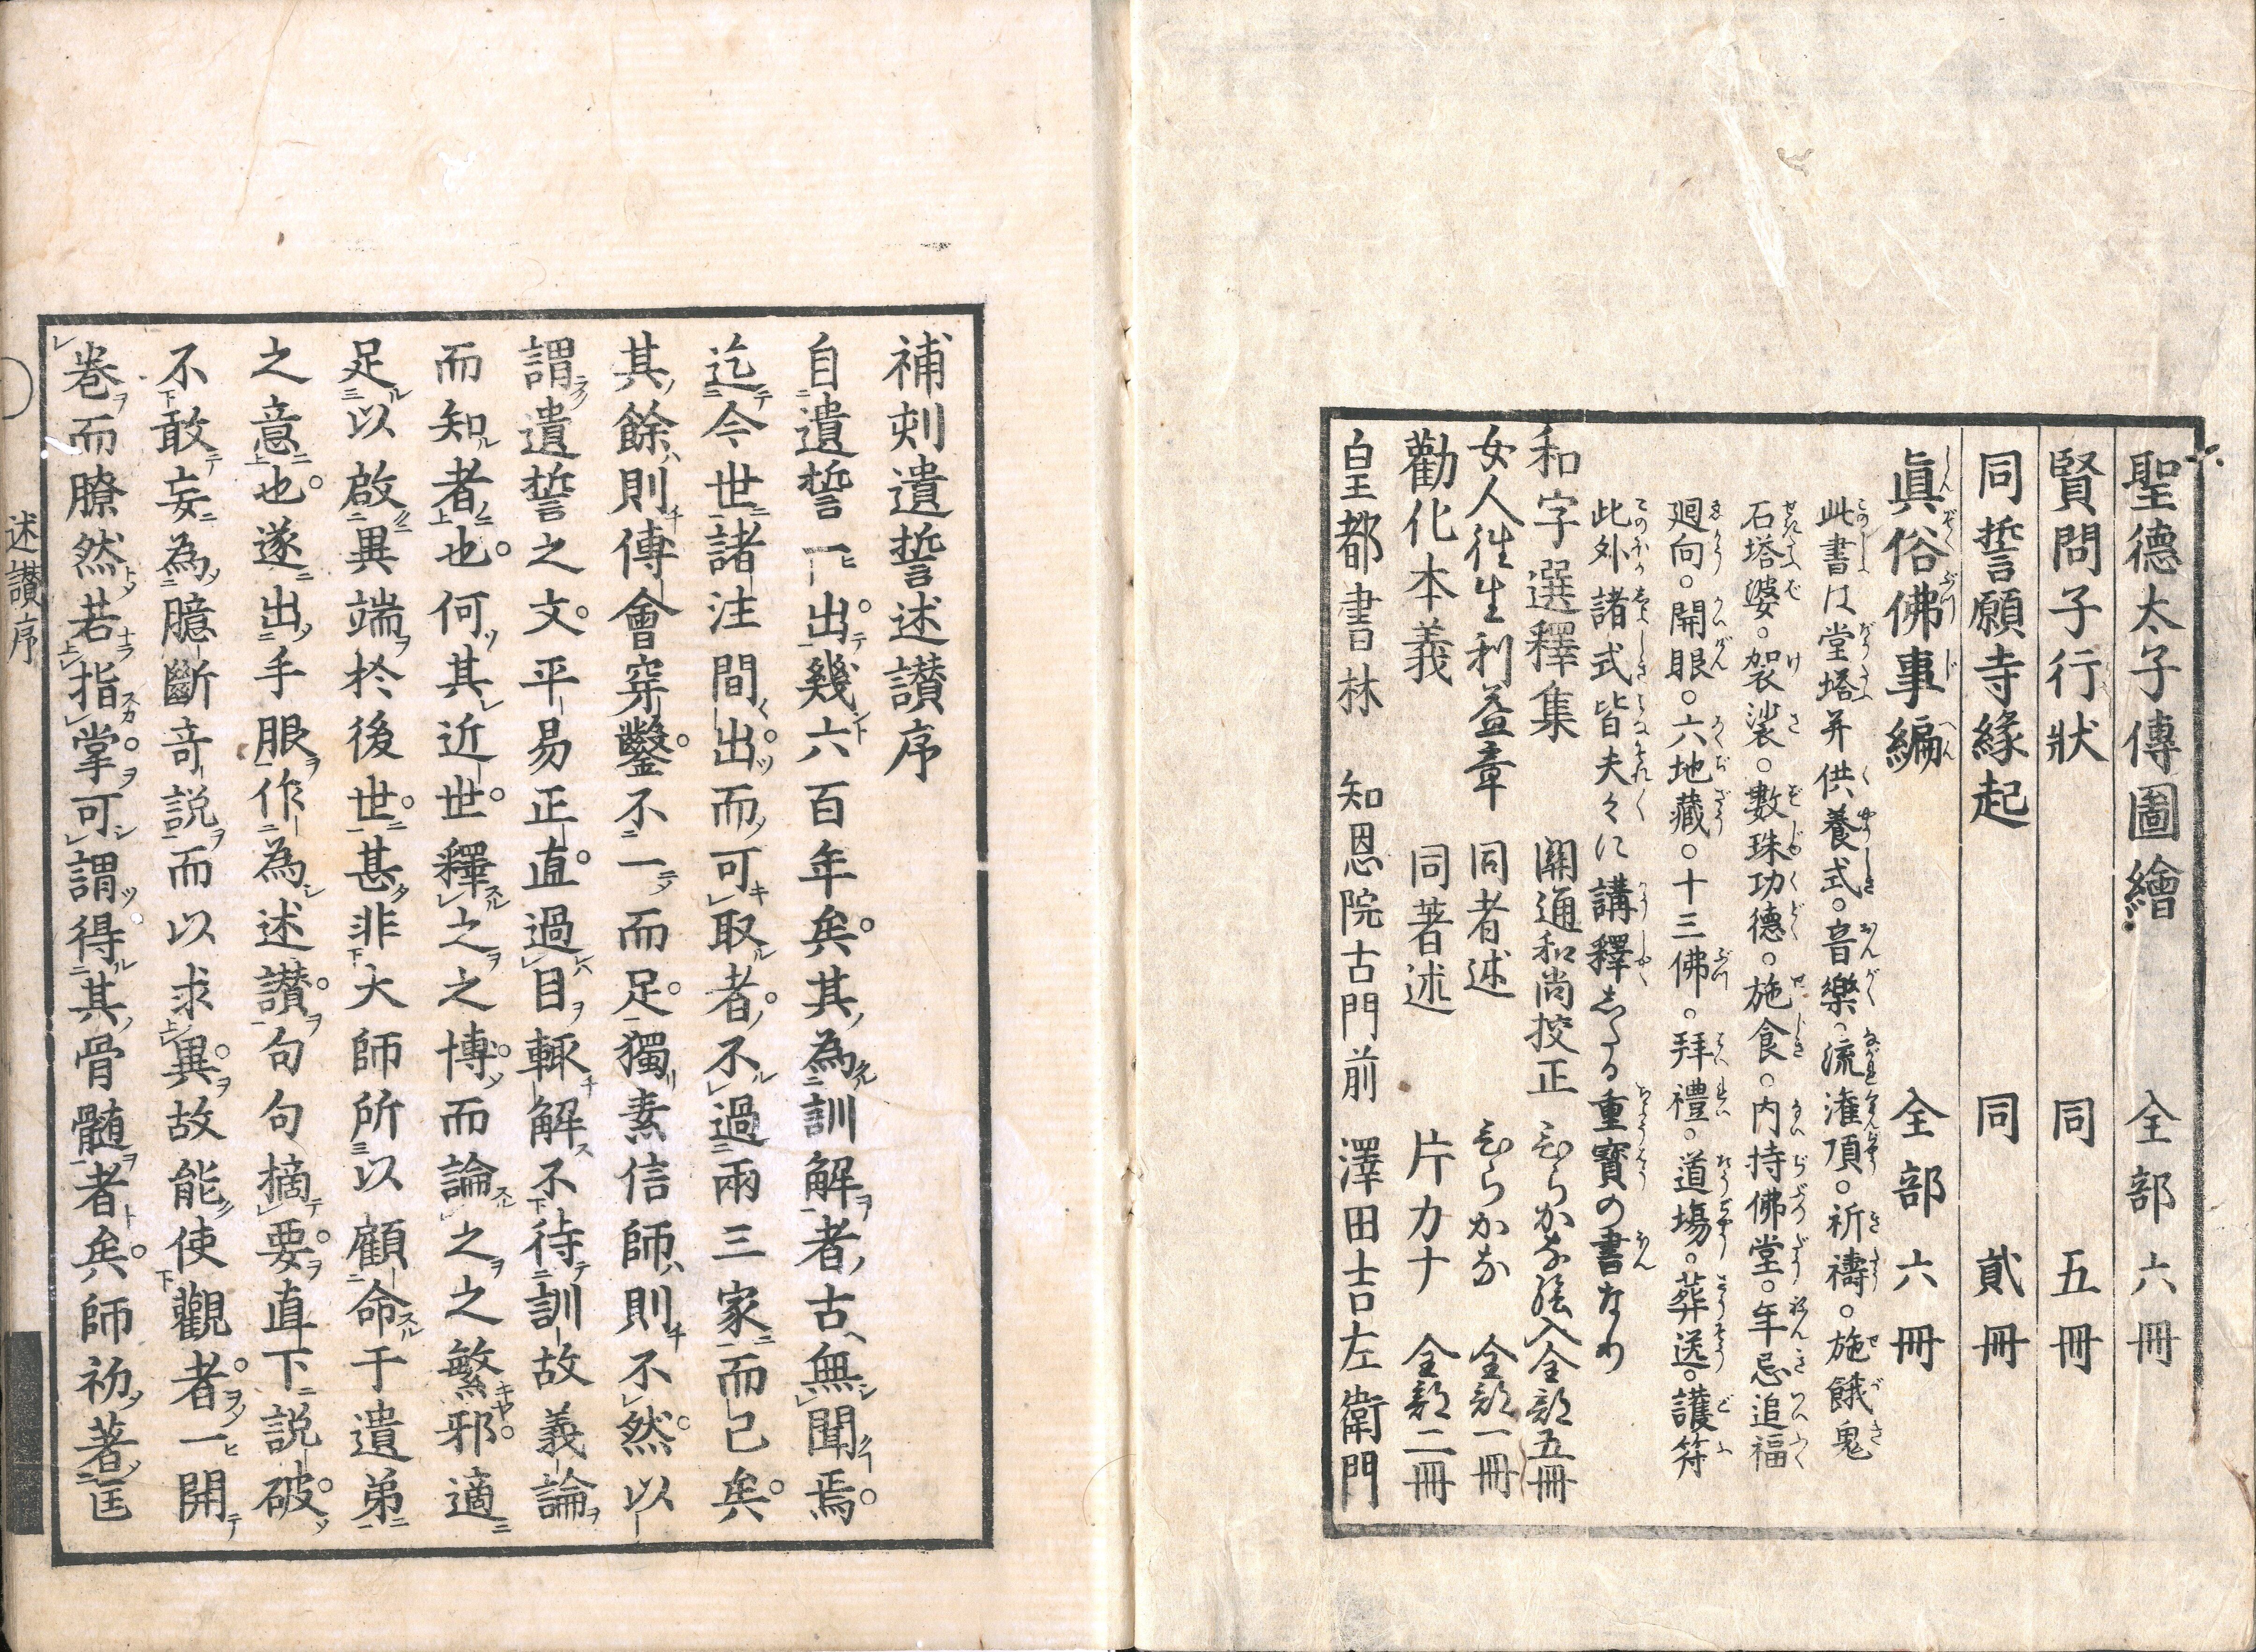 聖德太子傳圖繪　全部六冊
賢問子行狀　同　五冊
同誓願寺緣起　同　貳冊
眞俗佛事編　全部六冊
此書は堂塔并供養式。音樂。流灌頂。祈禱。施餓鬼
石塔婆。袈裟。數珠功德。施食。内持佛堂。年忌追福
廻向。開眼。六地藏。十三佛。拜禮。道場。葬送。護符
此外諸式皆夫々に講釋したる重寶の書なり
和字選釋集　關通和尚挍正　ひらかな繪入全部五冊
女人徃生利益章　同者述　ひらかな　全部一冊
勸化本義　同著述　片カナ　全部二冊
皇都書林　知恩院古門前　澤田吉左衛門
補刻遺誓述讃序
自遺誓一出幾六百年矣其為訓解者古無聞焉
迄今世諸注間出而可取者不過兩三家而已矣
其餘則傅會穿鑿不一而足獨素信師則不然以
謂遺誓之文平易正直過目輒解不待訓故義論
而知者也何其近世釋之之博而論之之繁邪適
足以啟異端於後世甚非大師所以顧命于遺弟
之意也遂出手眼作為述讃句句摘要直下説破
不敢妄為臆斷竒説而以求異故能使觀者一開
卷而瞭然若指掌可謂得其骨髓者矣師初著匡
述讃序